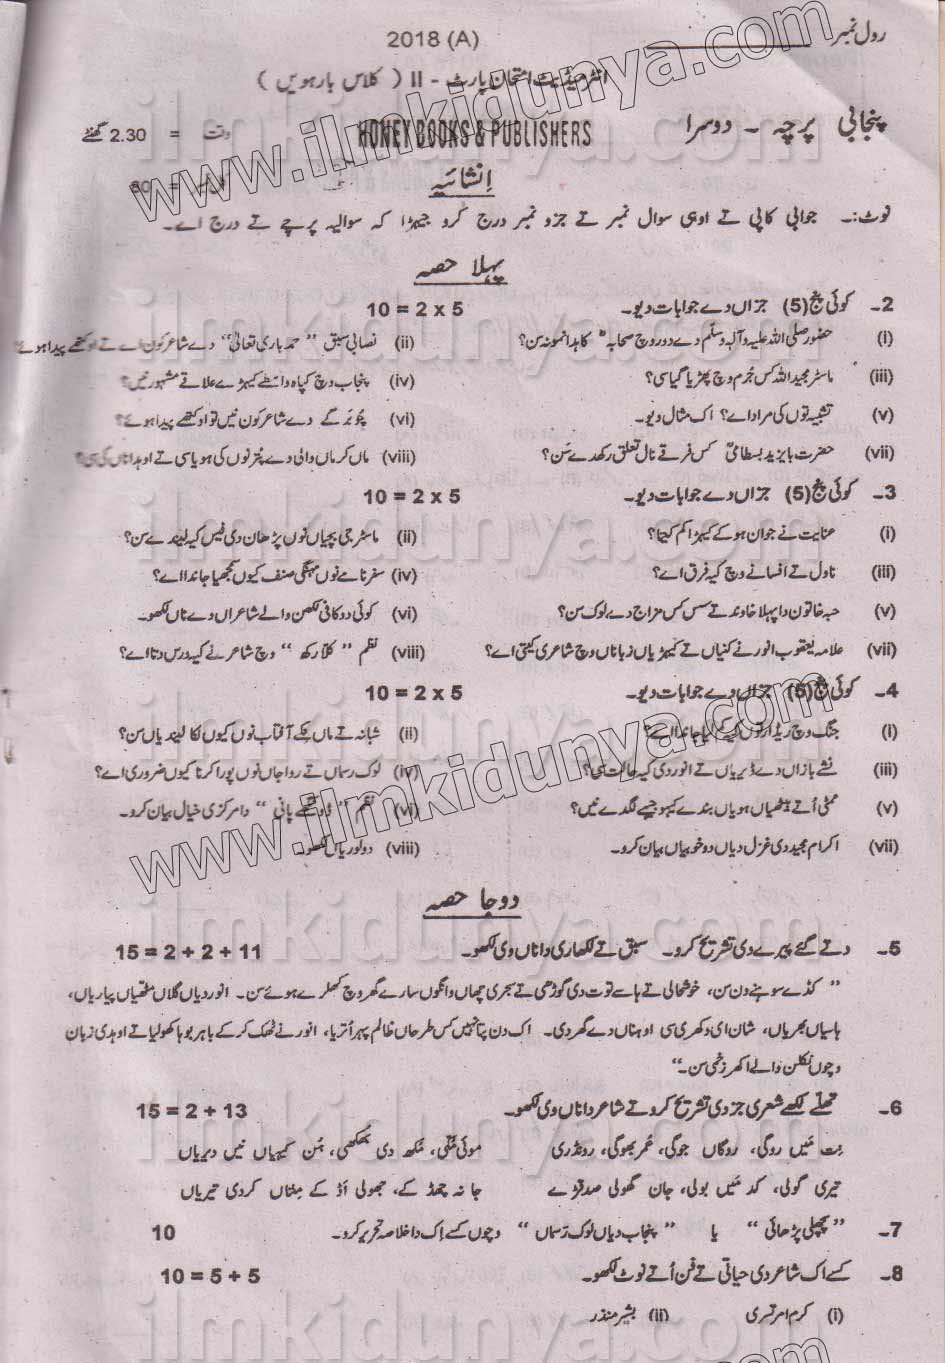 رول نمبر
2018 (A)
انٹرمیڈیٹ امتحان پارٹ - II ( کلاس بارھویں )
پنجابی پرچہ - دوسرا HONEY BOOKS & PUBLISHERS وقت = 2.30 گھنٹے
اِنشائیہ = 80
نوٹ:۔ جوابی کاپی تے اوہی سوال نمبر تے جزو نمبر درج کرو جیہڑا کہ سوالیہ پرچے تے درج اے۔
پہلا حصہ
2۔ کوئی پنج (5) جزاں دے جوابات دیو۔ 10 = 2 x 5
(i) حضور صلی اللہ علیہ وآلہٖ وسلم دے دور وچ صحابہؓ کاہدا نمونہ سن؟ (ii) نصابی سبق "حمد باری تعالیٰ" دے شاعر کون اے تے اوہ کتھے پیدا ہوئے؟
(iii) ماسٹر مجید اللہ کس جُرم وچ پھڑیا گیا سی؟ (iv) پنجاب وچ کپاہ واسطے کیہڑے علاقے مشہور نیں؟
(v) تشبیہ توں کی مراد اے؟ اک مثال دیو۔ (vi) چُوبرگے دے شاعر کون نیں تے اوہ کتھے پیدا ہوئے؟
(vii) حضرت بایزید بسطامیؒ کس فرقے نال تعلق رکھدے سَن؟ (viii) ماں کرماں والی دے پُتر نوں کی ہویا سی تے اوہدا ناں کی سی؟
3۔ کوئی پنج (5) جزاں دے جوابات دیو۔ 10 = 2 x 5
(i) عنایت نے جوان ہو کے کیہڑا کم کیتا؟ (ii) ماسٹر جی بچیاں نوں پڑھان دی فیس کیہ لیندے سن؟
(iii) ناول تے افسانے وچ کیہ فرق اے؟ (iv) سفرنامے نوں مہنگی صنف کیوں سمجھیا جاندا اے؟
(v) حبہ خاتون دا پہلا خاوند تے سس کس مزاج دے لوک سن؟ (vi) کوئی دو کافی لکھن والے شاعراں دے ناں لکھو۔
(vii) علامہ یعقوب انور نے کنیاں تے کیہڑیاں زباناں وچ شاعری کیتی اے؟ (viii) نظم "کلّا رکھ" وچ شاعر نے کیہ درس دتا اے؟
4۔ کوئی پنج (5) جزاں دے جوابات دیو۔ 10 = 2 x 5
(i) جنگ وچ ریڈار توں کیہ کم لیا جاندا اے؟ (ii) شبانہ تے ماں جی آفتاب نوں کیوں لکا لیندیاں سن؟
(iii) نشے بازاں دے ڈیریاں تے انور دی کیہ حالت سی؟ (iv) لوک رسماں تے رواجاں نوں پورا کرنا کیوں ضروری اے؟
(v) ممٹی اُتے بیٹھیاں ہویاں بندے کیہو جیہے لگدے نیں؟ (vi) نظم "ڈونگھے پانی" دا مرکزی خیال بیان کرو۔
(vii) اکرام مجید دی غزل دیاں دو خوبیاں بیان کرو۔ (viii) دو لوریاں لکھو۔
دوجا حصہ
5۔ دتے گئے پیرے دی تشریح کرو۔ سبق تے لکھاری دا ناں وی لکھو۔ 15 = 2 + 2 + 11
"کڈے سوہنے دن سن، خوشحالی تے ہاسے توت دی گوڑھی تے سجری چھاں وانگوں سارے گھر وچ کھلرے ہوئے سن۔ انور دیاں گلاں مٹھیاں پیاریاں،
ہاسیاں بھریاں، شان ای وکھری سی اوہناں دے گھر دی۔ اک دن پتا نہیں کس طرحاں ظالم پہر اُتریا، انور نے ٹھک کر کے باہر بوہا کھولیا تے اوہدی زبان
وچوں نکلن والے اکھر زخمی سن۔"
6۔ تھلے لکھے شعری جز دی تشریح کرو تے شاعر دا ناں وی لکھو۔ 15 = 2 + 13
بت مَیں روگی، روگاں جوگی، عُمر بھوگی، روندڑی موئی مُٹّھی، مُکھ دی بھُکھی، ہُن کیہیاں نیں دیریاں
تیری گولی، کد مَیں بولی، جان گھولی صدقڑے جا نہ چھڈ کے، جھولی اڈ کے مِنتاں کردی تیریاں
7۔ "پچھلی پڑھائی" یا "پنجاب دیاں لوک رَسماں" وچوں کسے اِک دا خلاصہ تحریر کرو۔ 10
8۔ کسے اک شاعر دی حیاتی تے فن اُتے نوٹ لکھو۔ 10 = 5 + 5
(i) کرم امرتسری (ii) بشیر منذر
www.ilmkidunya.com
ilmkidunya.com